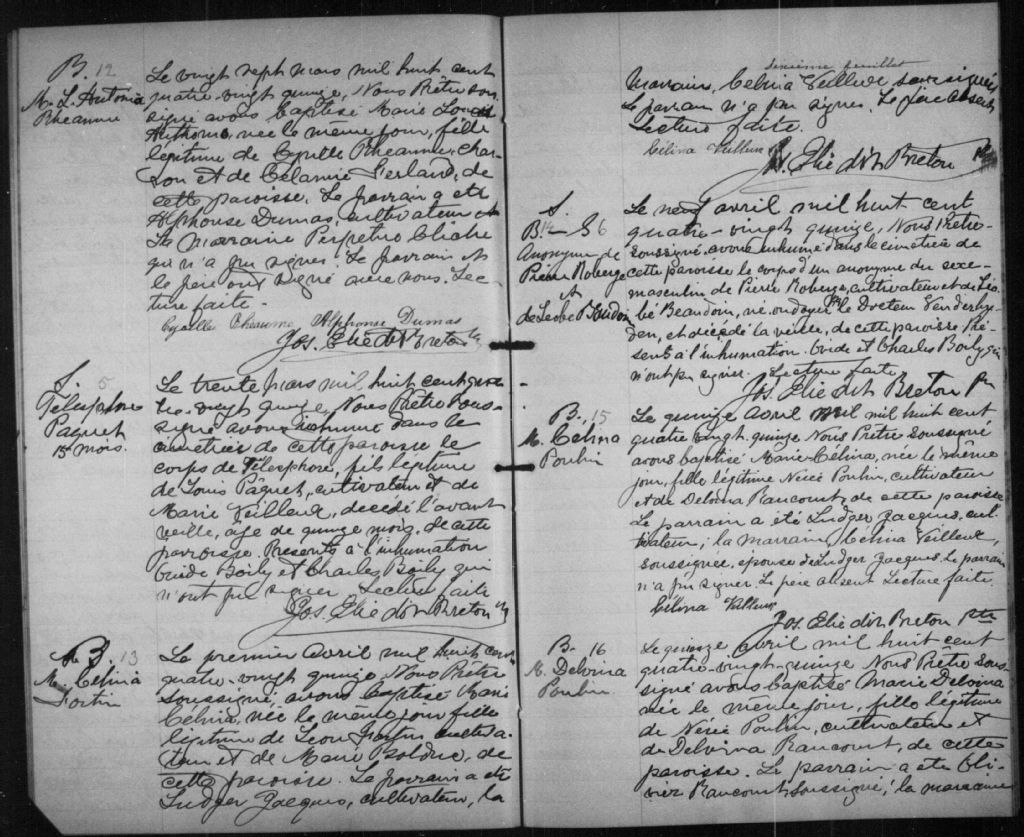 B. 12
M. L. Antonia
Rheaume
Le vingt sept mars mil huit cent
quatre-vingt quinze, Nous Prêtre sous
signé avons baptisé Marie Louise
Anthonia, née le même jour, fille
légitime de Cyrille Rheaume, char-
ron et de Célamie Ferland, de
cette paroisse. Le parrain a été
Alphonse Dumas, cultivateur et
La Marraine Perpetue Cliche
qui n'a pu signer. Le parrain et
le père ont signé avec nous. Lec-
ture faite.
Cyrille Rheaume Alphonse Dumas
Jos. Elie dit Breton
S. 5
Télesphore
Paquet
15 mois.
Le trente mars mil huit cent qua
tre-vingt quinze, Nous Prêtre sous-
signé avons inhumé dans le
cimetière de cette paroisse le
corps de Télesphore, fils légitime
de Louis Pâquet, cultivateur et de
Marie Veilleux, décédé l'avant
veille, age de quinze mois, de cette
parroisse. Presents à l'inhumation
Ovide Boily et Charles Boily qui
n'ont pu signer Lecture faite
Jos. Elie dit Breton
B. 13
M. Célina
Fortin
Le premier avril mil huit cent
quatre-vingt quinze Nous Prêtre
soussigné, avons baptisé Marie
Célina, née le même jour fille
légitime de Léon Fortin cultiva-
teur et de Marie Bolduc, de
cette paroisse. Le parrain a été
Ludger Jacques, cultivateur, la
feuillet
marraine, Célina Veilleux soussignée
Le parrain n'a pu signer. Le père absent
Lecture faite.
Célina Veilleux
Jos. Elie dit Breton Ptre
S.
B. S 6
Anonyme de
Pierre Roberge
et
de Leobé Beaudoin
Le neuf avril mil huit cent
quatre-vingt quinze, Nous Prêtre-
soussigné, avons inhumé dans le cimetière de
cette paroisse le corps d'un anonyme du sexe-
masculin de Pierre Roberge, cultivateur et de Léo-
bé Beaudoin, né, ondoyé par le Docteur Vanderhey-
den, et décédé la veille, de cette paroisse Pré-
sents à l'inhumation. Ovide et Charles Boily qui
n'ont pu signer. Lecture faite
Jos. Elie dit Breton Ptr
B. 15
M. Célina
Poulin
Le quinze avril mil huit cent
quatre vingt-quinze Nous Prêtre soussigné
avons baptisé Marie-Célina, née le même
jour, fille légitime Nérée Poulin, cultivateur
et de Delvina Rancourt, de cette paroisse
Le parrain a été Ludger Jacques, cul-
tivateur, la marraine, Célina Veilleux,
soussignée, épouse de Ludger Jacques. Le parrain
n'a pu signer. Le père absent Lecture faite.
Célina Veilleux
Jos. Elie dit Breton Ptre
B. 16
M. Delvina
Poulin
Le quinze avril mil huit cent
quatre-vingt-quinze Nous Prêtre sous-
signé avons baptisé Marie Delvina
née le même jour, fille légitime
de Nérée Poulin, cultivateur et
de Delvina Rancourt, de cette
paroisse. Le parrain a été Oli-
vier Rancourt soussigné, la marraine